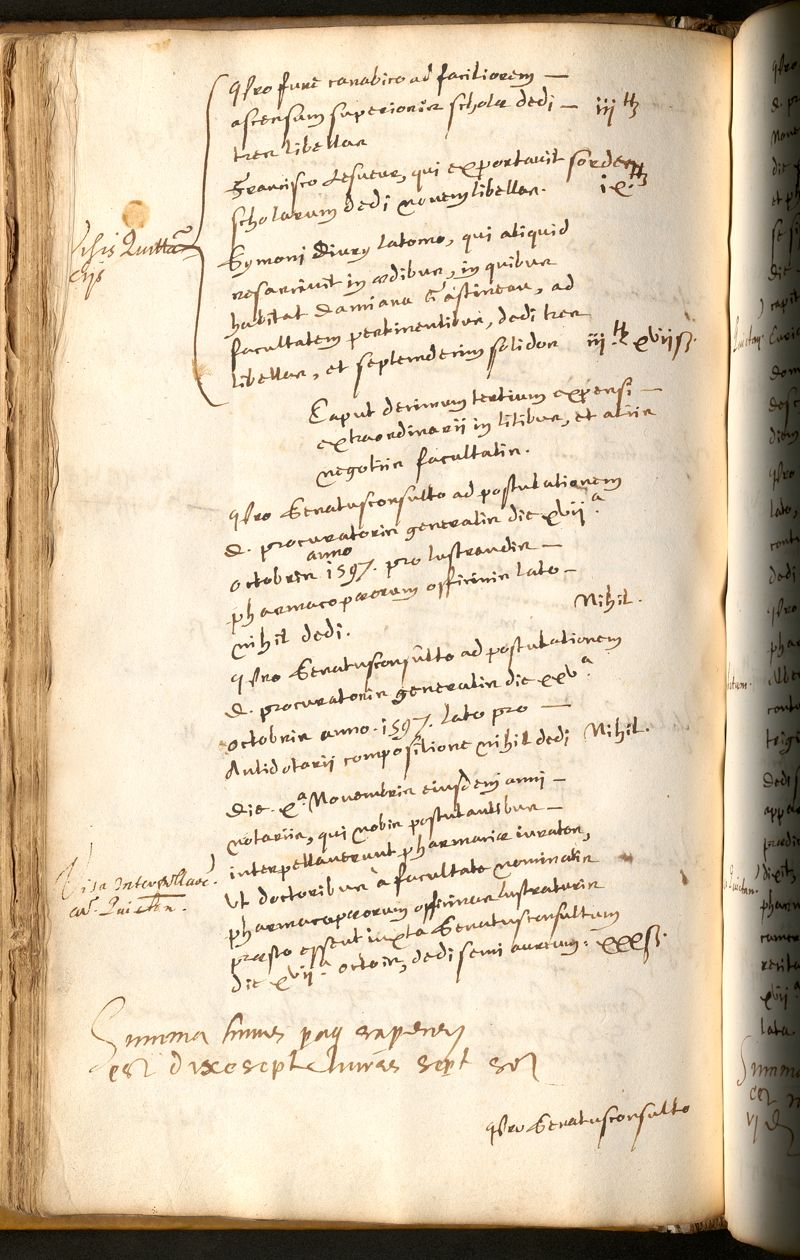 Pro fune canabico ad faciliorem —
ascensum superioris scholæ dedi — iij ₶
tres libellas
Francisco Lesueur, qui exportavit sordes
scholarum dedi novem libellas. ix ₶
Visis Quitta~
cijs
Symoni Diury latomo, qui aliquid
resarcivit in ædibus, in quibus
habitat Damiana Gastineau, ad
facultatem pertinentibus, dedi tres
libellas, et septemdecim solidos iij ₶ xvij ß.
Caput decimum tertium expensi —
extraordinarij in litibus, et alijs
negotijs facultatis.
Pro Senatusconsulto ad postulationem
D. procuratoris generalis die xvij.ª
octobris anno 1597. pro lustrandis —
pharmacopæorum officinis lato —
nihil dedi. Nihil.
Pro Senatusconsulto ad postulationem
D. procuratoris generalis die xxv.ª
octobris anno. 1597. lato pro —
Antidotarij compositione nihil dedi Nihil.
Die. x.ª Novembris eiusdem anni —
notarijs, qui nobis postulantibus —
interpellaverunt pharmaciæ iuratos,
Visa
ut doctoribus à facultate nominatis
pharmacopæorum officinas lustraturis
præsto essent iuxta Senatusconsultum
die xvij.ª octobr, dedi semi aureum. xxx ß.
Summa huius pag
est sept sol
Pro Senatusconsulto